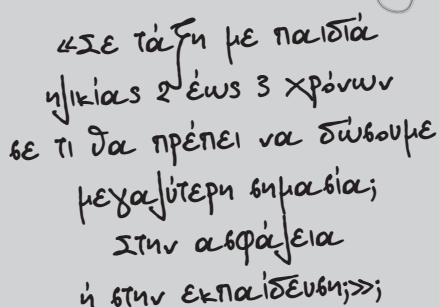 «Σε τάξη με παιδιά
ηλικίας 2 έως 3 χρόνων
σε τι θα πρέπει να δώσουμε
μεγαλύτερη σημασία;
Στην ασφάλεια
ή στην εκπαίδευση;»;